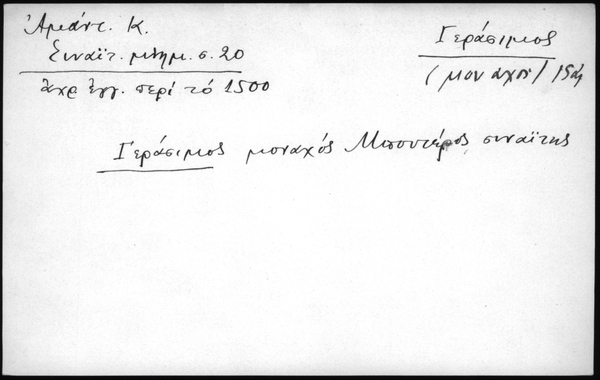 Ἀμάντ. Κ.
Σιναϊτ. μνημ. σ. 20
ἀχρ ἔγγ. περί τό 1500
Γεράσιμος
(μοναχός) 15ος
Γεράσιμος μοναχός Μπουτέρος σιναΐτης